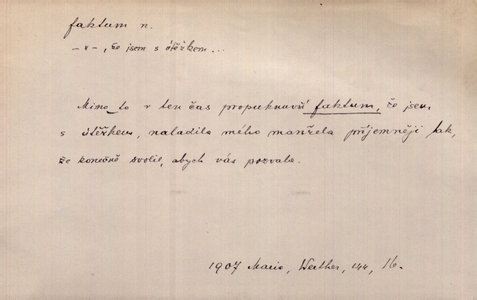 faktum n.
–„–, že jsem s útěžkem...
Mimo to v ten čas propuknuvší faktum, že jsem
s útěžkem, naladilo mého manžela příjemněji tak,
že konečně svolil, abych vás pozvala.
1907 Maria, Werther, 144, 16.